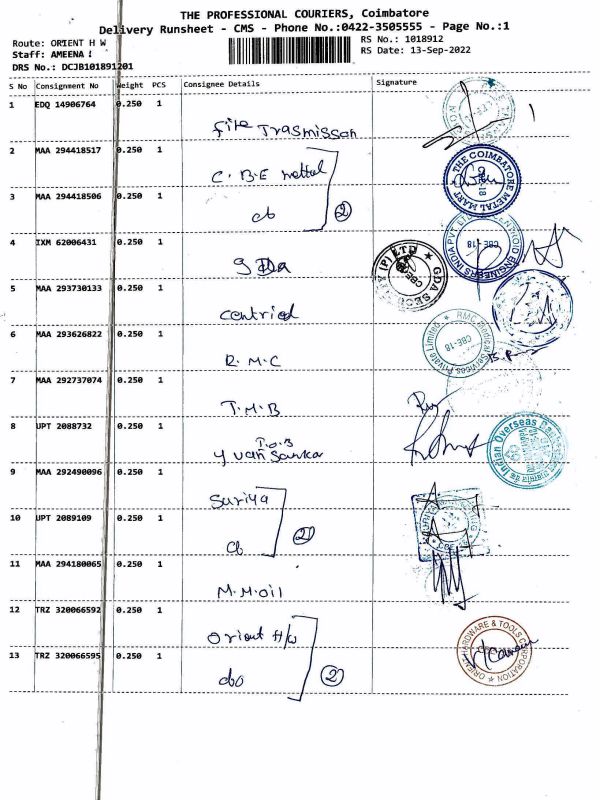 THE PROFESSIONAL COURIERS, Coimbatore
Delivery Runsheet - CMS - Phone No.:0422-3505555 - Page No.:1
Route: ORIENT H W
RS No.: 1018912
Staff: AMEENA
RS Date: 13-Sep-2022
DRS No.: DCJB101891201
S No Consignment No Weight PCS Consignee Details Signature
1 EDQ 14906764 0.250 1
fire Trasmisson
2 MAA 294418517 0.250 1
C. B.E mettal
THE COIMBATORE METAL MART
3 MAA 294418506 0.250 1
do 2
CENTROID ENGINEERS INDIA PVT LTD
CBE-18
4 IXM 62006431 0.250 1
g Da
(P) LTD GDA SEC
CBE
5 MAA 293730133 0.250 1
centriod
6 MAA 293626822 0.250 1
R. M. C
RMC Medical Services Private Limited
CBE-18
7 MAA 292737074 0.250 1
T. M. B
8 UPT 2088732 0.250 1
I.O.B
Yuvan Sankar
Indian Overseas Bank
9 MAA 292490096 0.250 1
Suriya
10 UPT 2089109 0.250 1
do 2
11 MAA 294180065 0.250 1
M.M.oil
12 TRZ 320066592 0.250 1
Orient H/w
ORIENT HARDWARE & TOOLS CORPORATION
13 TRZ 320066595 0.250 1
do 2